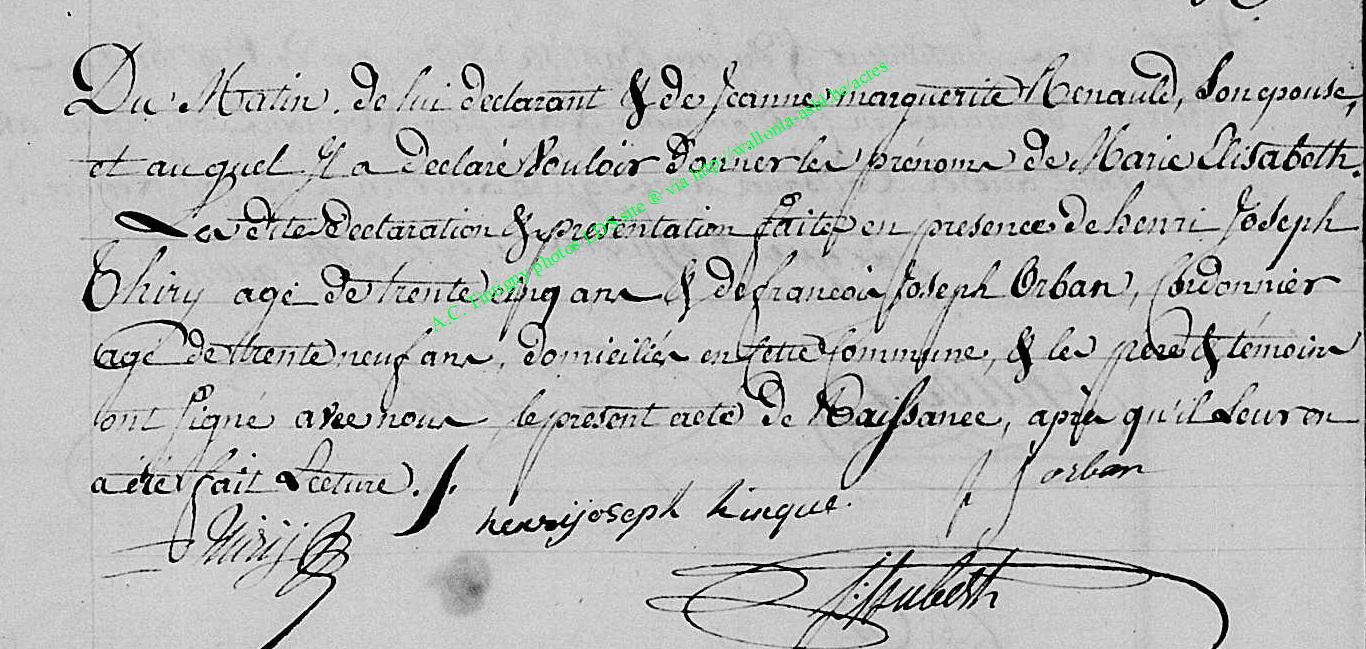 Du Matin, de lui declarant & de Jeanne marguerite Renauld, Son epouse,
et auquel Il a declaré Vouloir Donner les prénoms de Marie Elisabeth.
La dite Declaration & presentation faites en presence de henri Joseph
Thiry agé de trente cinq ans & de francois Joseph Orban, Cordonnier
agé de trente neuf ans, domiciliés en Cette Commune, & les pere & témoins
ont Signé avec nous le present acte de Naissance, après qu'il Leur en
a été fait Lecture.
henrijoseph
f J orban
Thirij
A.C. photos LDS site ® via http://wallonia-asbl.be/actes